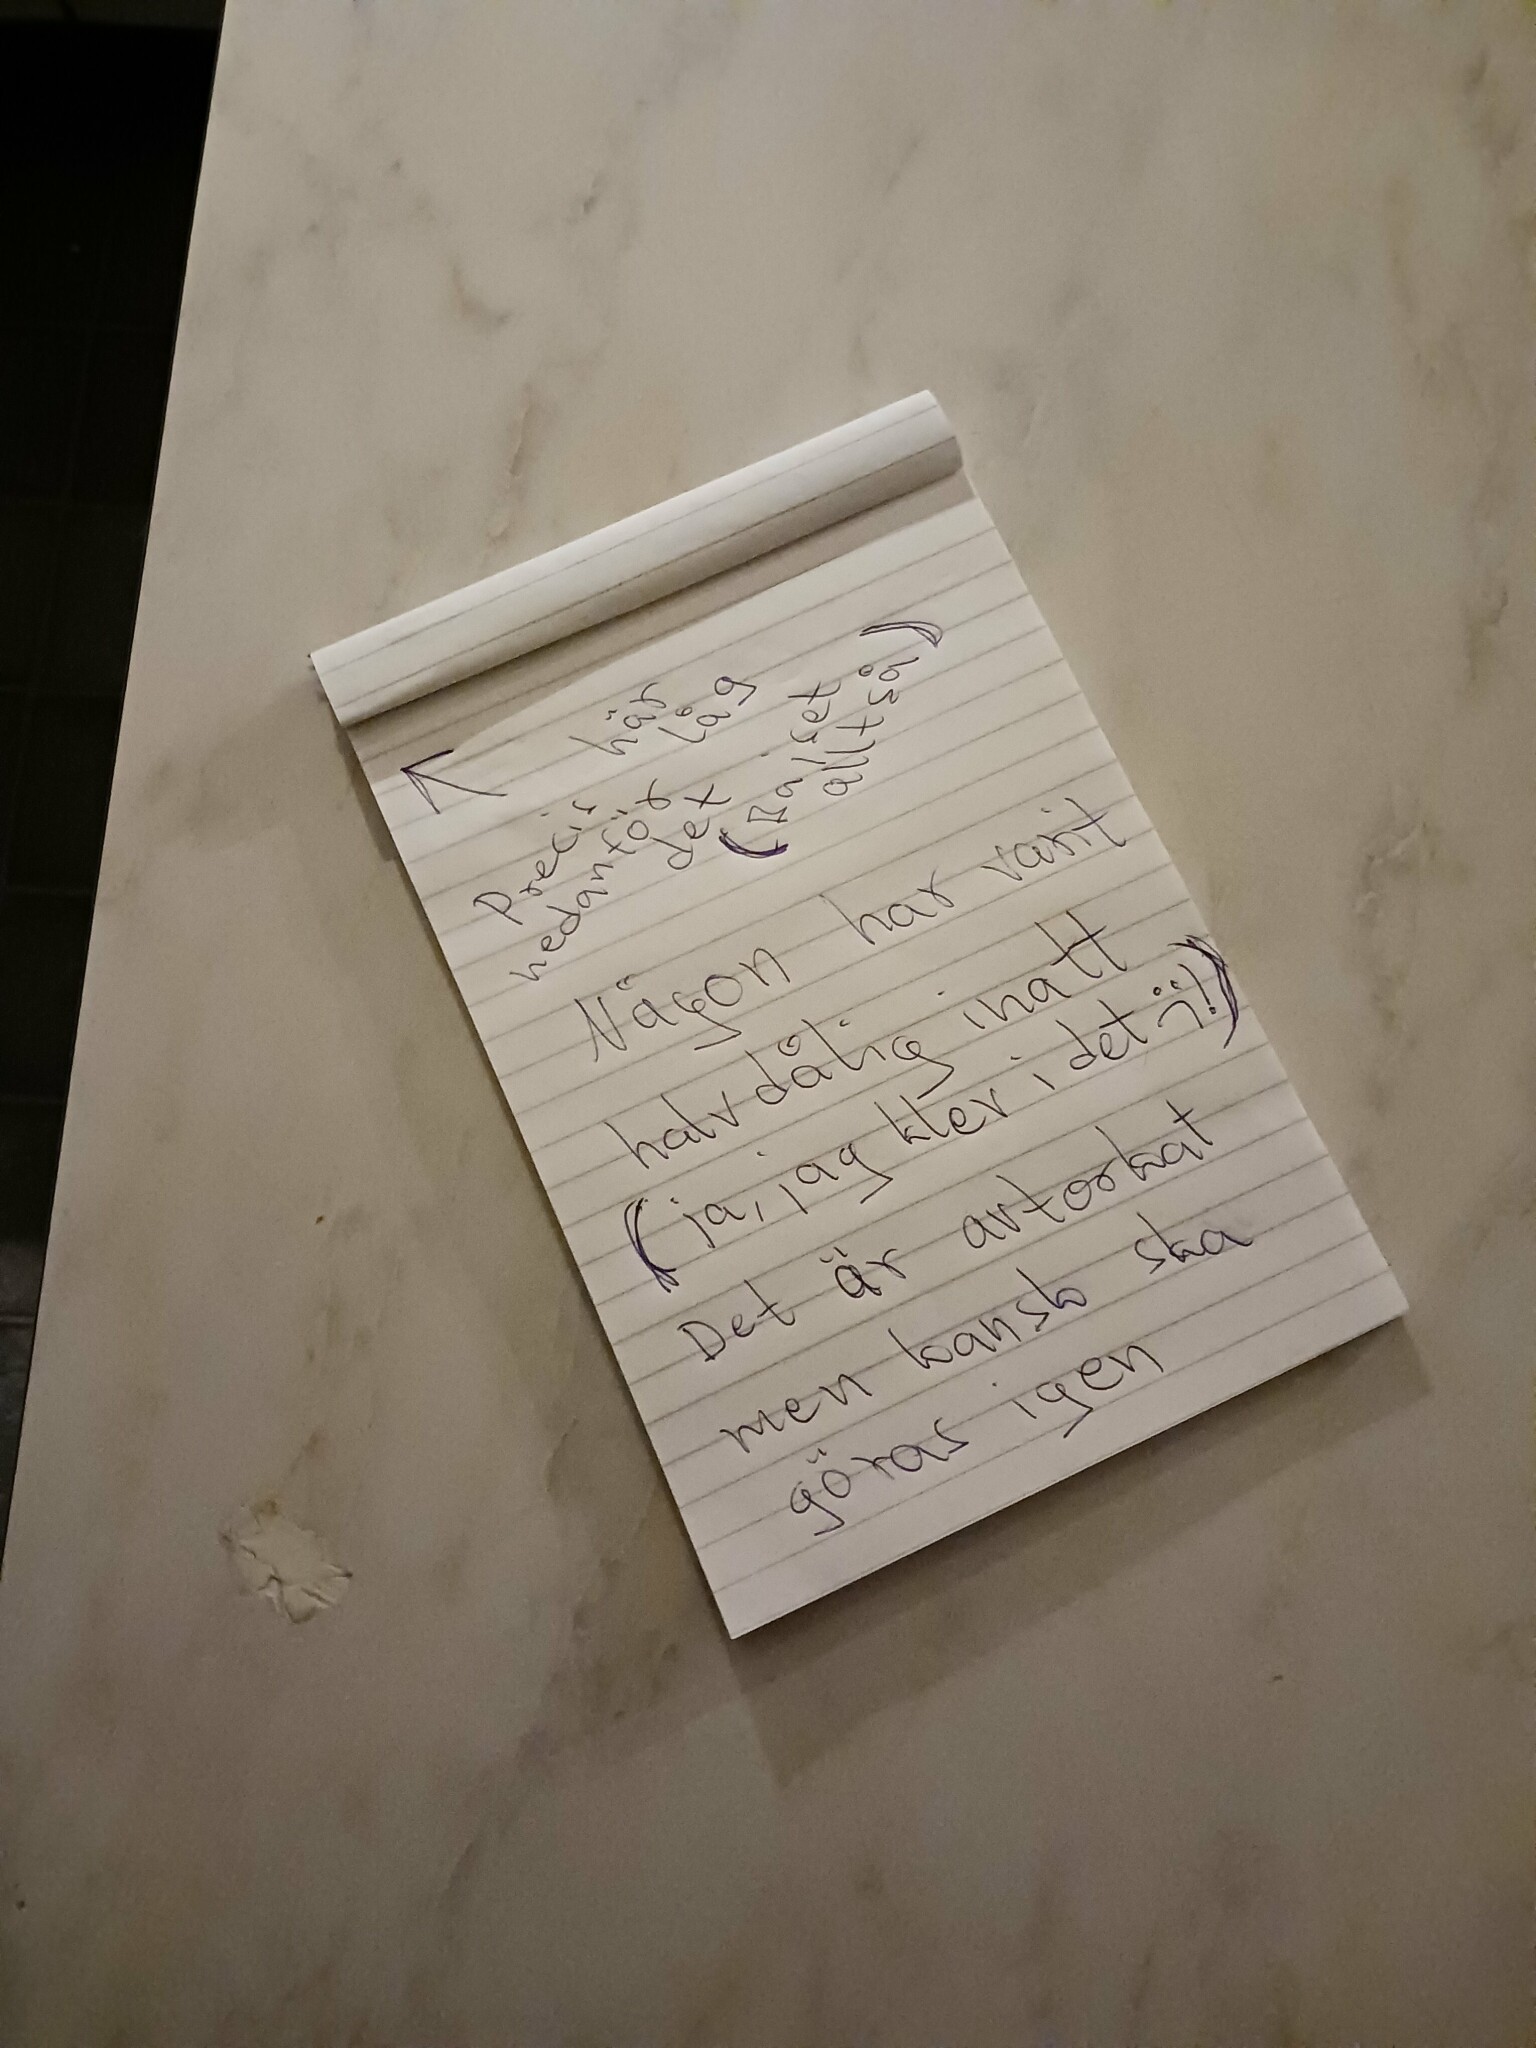 Precis här
nedanför låg
det
(på golvet
alltså)
Någon har varit
halvdålig inatt
(ja, jag klev i det :(!)
Det är avtorkat
men kansk ska
göras igen